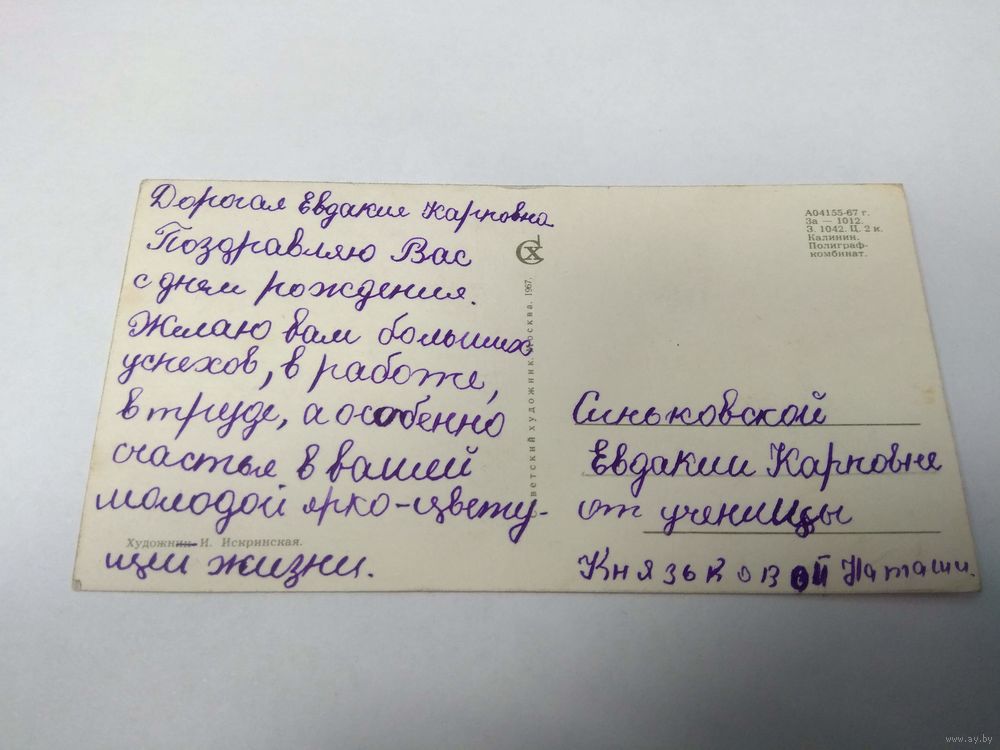 Дорогая Евдакие Карповна
Поздравляю Вас
с днем рождения.
Желаю вам больших
успехов, в работе,
в труде, а особенно
счастья в вашей
молодой ярко-цвету-
щей жизни.
Художник И. Искринская.
СХ
Советский художник. Москва. 1967.
А04155-67 г.
За — 1012.
З. 1042. Ц. 2 к.
Калинин.
Полиграф-
комбинат.
Синьковской
Евдакии Карповне
от ученицы
Князьковой Наташи.
www.ay.by